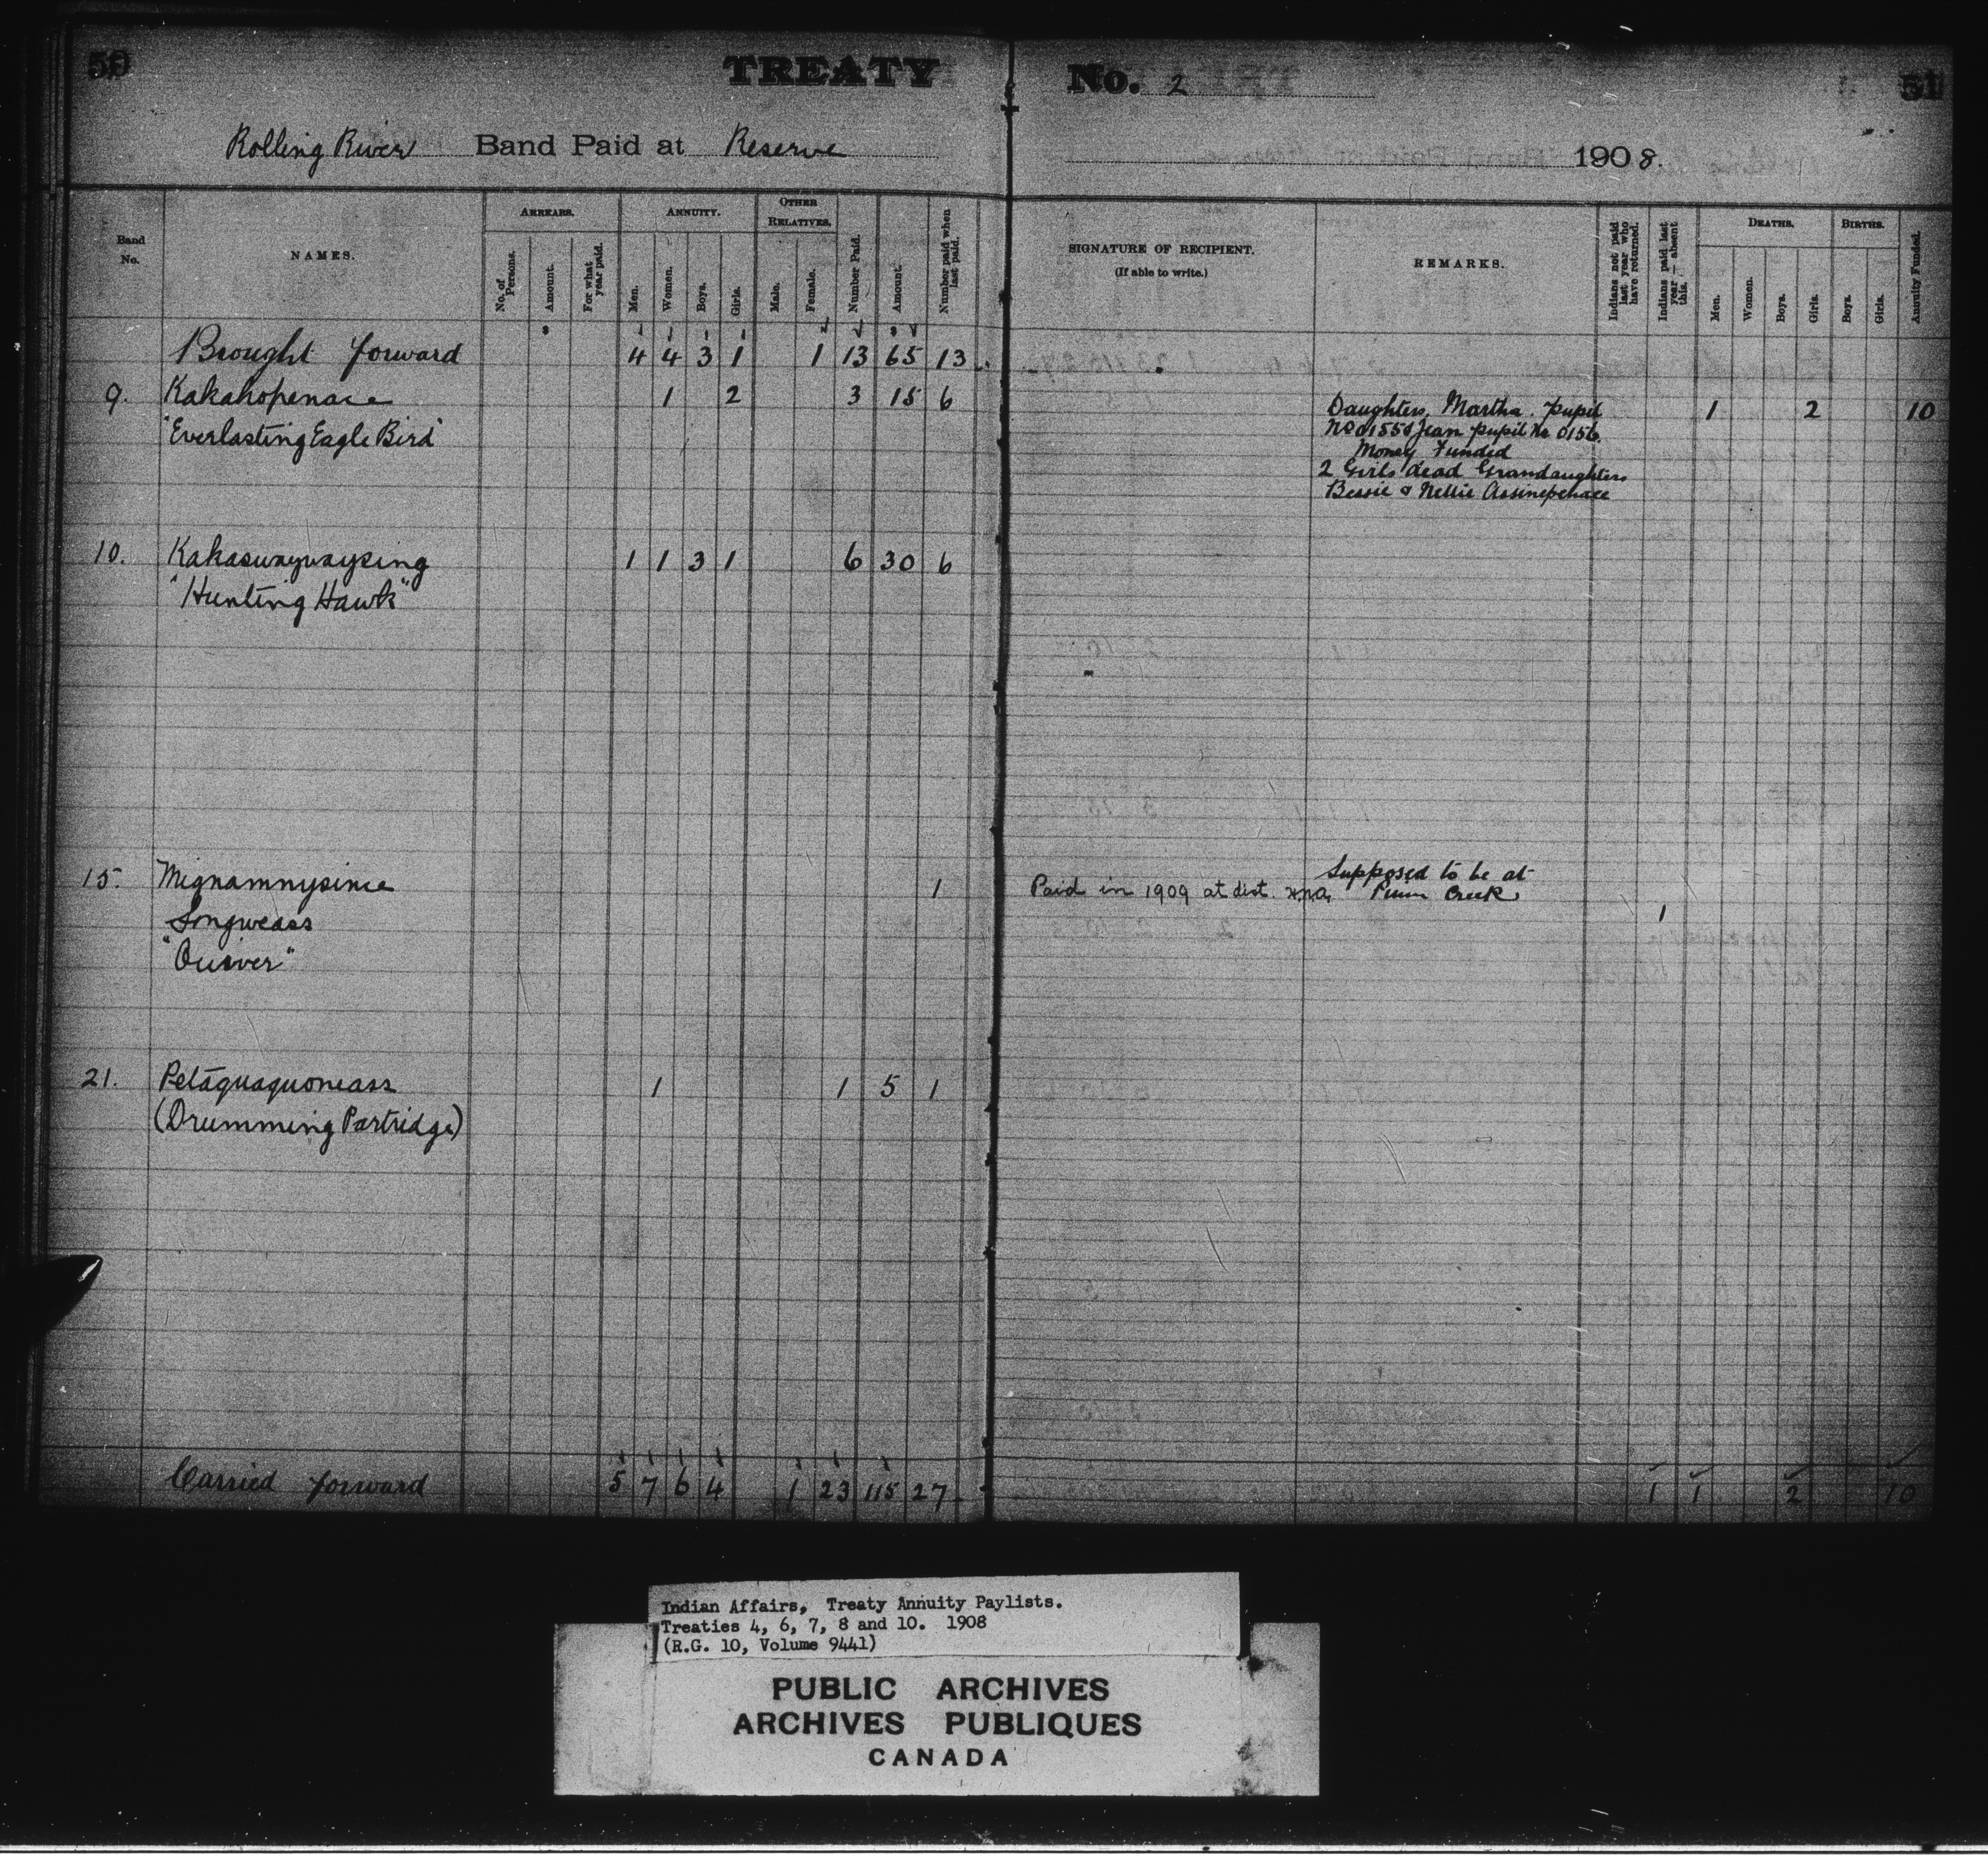 50
TREATY No. 2
51
Rolling River Band Paid at Reserve 1908.
Band No.
NAMES.
ARREARS.
No. of Persons.
Amount.
For what year paid.
ANNUITY.
Men.
Women.
Boys.
Girls.
OTHER RELATIVES.
Male.
Female.
Number Paid.
Amount.
Number paid when last paid.
SIGNATURE OF RECIPIENT.
(If able to write.)
REMARKS.
Indians not paid last year who have returned.
Indians paid last year — absent this.
DEATHS.
Men.
Women.
Boys.
Girls.
BIRTHS.
Boys.
Girls.
Annuity Funded.
Brought forward 4 4 3 1 1 13 65 13
9. Kakakopenace 1 2 3 15 6 Daughters, Martha. pupil 1 2 10
"Everlasting Eagle Bird" No 0155 & Jean pupil No 0156.
Money Funded
2 Girls dead Grandaughters
Bessie & Nellie Assinepenace
10. Kakaswaywaysing 1 1 3 1 6 30 6
"Hunting Hawk"
15. Mignamnysince 1 Paid in 1909 at dist. Supposed to be at
Creek
Songweass 1
"Quiver"
21. Petaquaquoneass 1 1 5 1
(Drumming Partridge)
Carried forward 5 7 6 4 1 23 115 27 1 1 2 10
Indian Affairs, Treaty Annuity Paylists.
Treaties 4, 6, 7, 8 and 10. 1908
(R.G. 10, Volume 9441)
PUBLIC ARCHIVES
ARCHIVES PUBLIQUES
CANADA